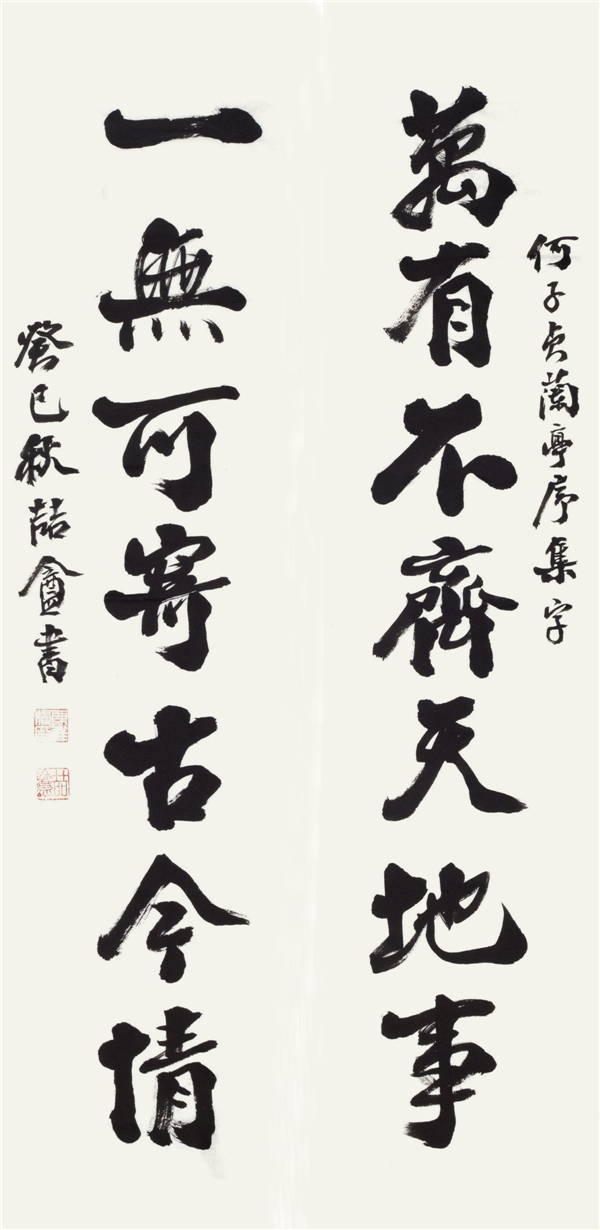 何子贞蘭亭序集字
萬有不齊天地事
一無可寄古今情
癸巳秋喆盦書